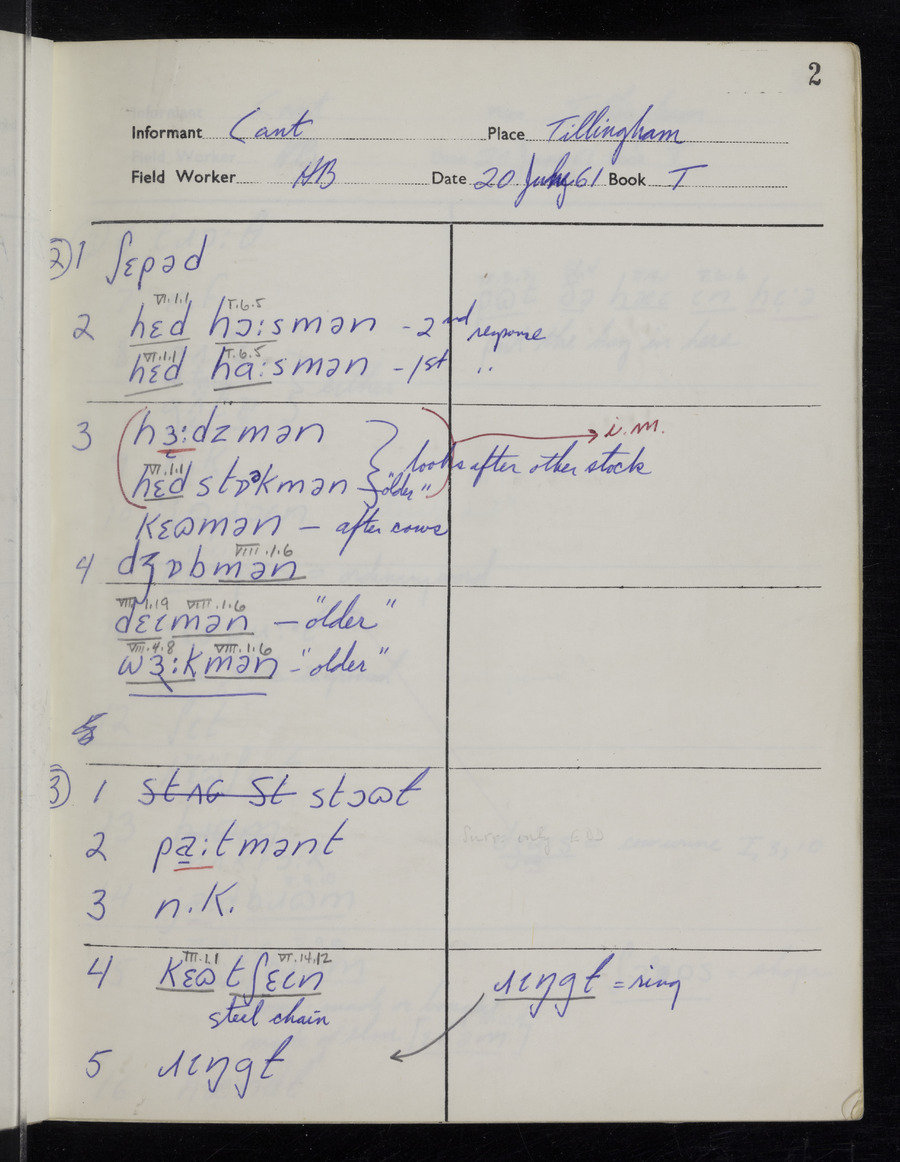 2
Informant Cant Place Tillingham
Field Worker HB Date 20 July 61 Book T
② 1 ʃɛpəd
VI.1.1 I.6.5
2 hɛd hɔ:smən - 2nd response
VI.1.1 I.6.5
hɛd ha:smən - 1st "
3 hɜ:dzmən looks after other stock → i.m.
VI.1.1
hɛd stɒᵊkmən - "older"
kɛɷmən - after cows
VIII.1.6
4 dʒɒbmən
VIII.1.19 VIII.1.6
dɛɩmən - "older"
VIII.4.8 VIII.1.6
wɜ:kmən - "older"
5
③ 1 stɔɷt
2 pa:tmənt
3 n.k.
III.1.1 VI.14.12
4 kɛɷ tʃɛɩn ɹɩŋgt = ring
steel chain
5 ɹɩŋgt